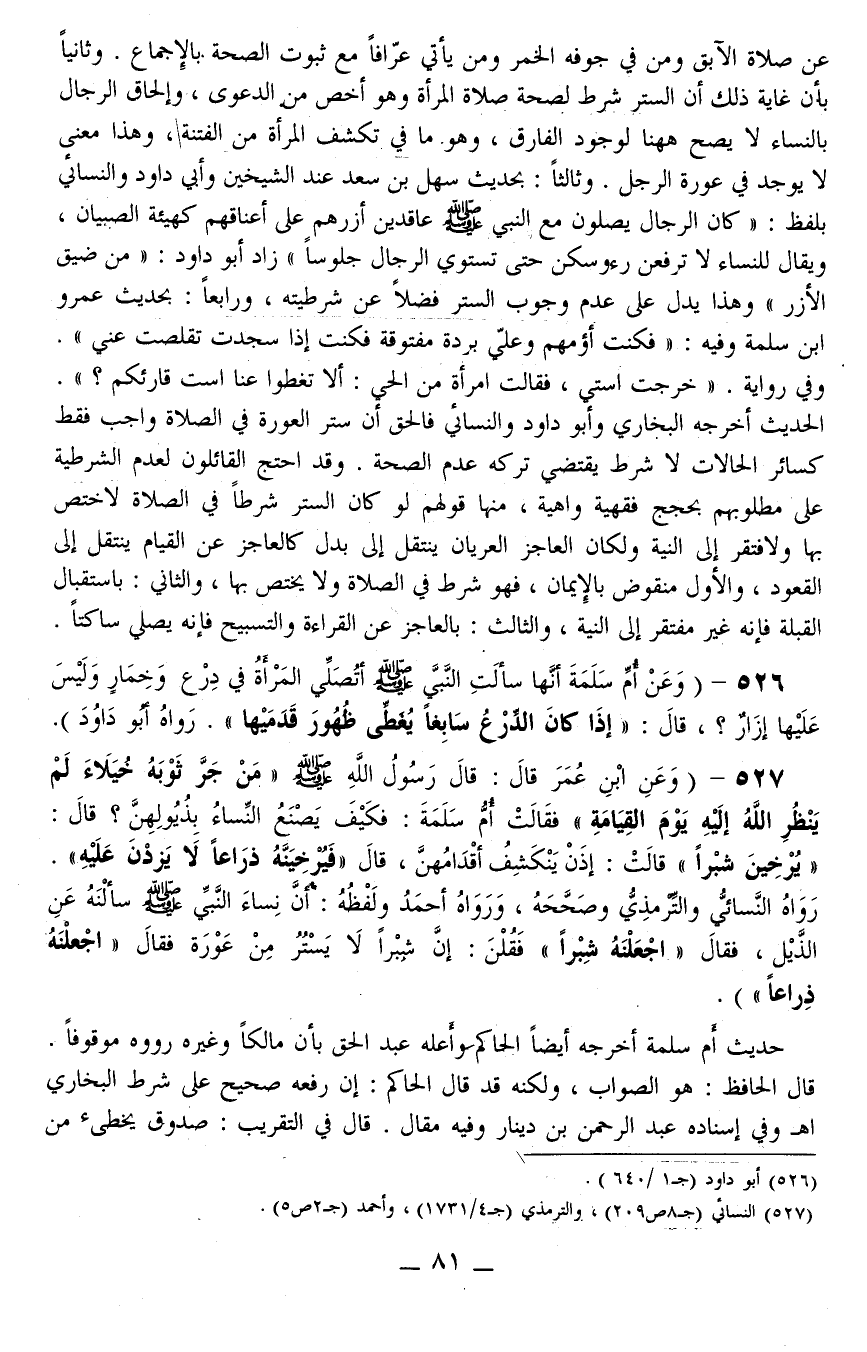 عن صلاة الآبق ومن في جوفه الخمر ومن يأتي عرّافاً مع ثبوت الصحة بالإجماع . وثانياً
بأن غاية ذلك أن الستر شرط لصحة صلاة المرأة وهو أخص من الدعوى ، وإلحاق الرجال
بالنساء لا يصح ههنا لوجود الفارق ، وهو ما في تكشف المرأة من الفتنة ، وهذا معنى
لا يوجد في عورة الرجل . وثالثاً : بحديث سهل بن سعد عند الشيخين وأبي داود والنسائي
بلفظ : « كان الرجال يصلون مع النبي ﷺ عاقدين أزرهم على أعناقهم كهيئة الصبيان ،
ويقال للنساء لا ترفعن رءوسكن حتى تستوي الرجال جلوساً » زاد أبو داود : « من ضيق
الأزر » وهذا يدل على عدم وجوب الستر فضلاً عن شرطيته ، ورابعاً : بحديث عمرو
ابن سلمة وفيه : « فكنت أؤمهم وعليّ بردة مفتوقة فكنت إذا سجدت تقلصت عني » .
وفي رواية . « خرجت استي ، فقالت امرأة من الحي : ألا تغطوا عنا است قارئكم ؟ » .
الحديث أخرجه البخاري وأبو داود والنسائي فالحق أن ستر العورة في الصلاة واجب فقط
كسائر الحالات لا شرط يقتضي تركه عدم الصحة . وقد احتج القائلون لعدم الشرطية
على مطلوبهم بحجج فقهية واهية ، منها قولهم لو كان الستر شرطاً في الصلاة لاختص
بها ولافتقر إلى النية ولكان العاجز العريان ينتقل إلى بدل كالعاجز عن القيام ينتقل إلى
القعود ، والأول منقوض بالإيمان ، فهو شرط في الصلاة ولا يختص بها ، والثاني : باستقبال
القبلة فإنه غير مفتقر إلى النية ، والثالث : بالعاجز عن القراءة والتسبيح فإنه يصلي ساكتاً .
٥٢٦ – ( وَعَنْ أُمِّ سَلَمَةَ أنَّها سألَتِ النَّبيَّ ﷺ أتُصَلِّي المَرْأَةُ في دِرْع وَخِمَارٍ وَلَيْسَ
عَلَيْها إزَارٌ ؟ ، قالَ : « إذَا كانَ الدِّرْعُ سَابِغاً يُغَطِّى ظُهُورَ قَدَمَيْها » . رَواهُ أبُو دَاوُدَ ).
٥٢٧ – ( وَعَنِ ابْنِ عُمَرَ قالَ : قالَ رَسُولُ اللَّهِ ﷺ « مَنْ جَرَّ ثَوْبَهُ خُيَلَاءَ لَمْ
يَنْظُرِ اللَّهُ إلَيْهِ يَوْمَ القِيَامَةِ » فقَالَتْ أُمُّ سَلَمَةَ : فكَيْفَ يَصْنَعُ النِّساءُ بِذُيُولِهِنَّ ؟ قالَ :
« يُرْخِينَ شبْراً » قالَتْ : إذَنْ يَنْكَشِفُ أقْدَامُهنَّ ، قالَ «فَيُرْخِينَهُ ذرَاعاً لَا يَزِدْنَ عَلَيْهِ» .
رَوَاهُ النَّسائيُّ والتِّرمذِيُّ وصَحَّحَهُ ، وَرَوَاهُ أحمَدُ ولَفْظُهُ : أنَّ نِساءَ النَّبيِّ ﷺ سألْنَهُ عَنِ
الذَّيْل ، فقالَ « اجْعَلْنَهُ شِبْراً » فَقُلْنَ : إنَّ شِبْراً لَا يَسْتُرُ مِنْ عَوْرَة فقالَ « اجْعلْنَهُ
ذِراعاً » ) .
حديث أم سلمة أخرجه أيضاً الحاكم وأعله عبد الحق بأن مالكاً وغيره رووه موقوفاً .
قال الحافظ : هو الصواب ، ولكنه قد قال الحاكم : إن رفعه صحيح على شرط البخاري
اهـ وفي إسناده عبد الرحمن بن دينار وفيه مقال . قال في التقريب : صدوق يخطىء من
(٥٢٦) أبو داود (جـ١ /٦٤٠ ) .
(٥٢٧) النسائي (جـ٨ص٢٠٩) ، والترمذي (جـ١٧٣١/٤) ، وأحمد (جـ٢ص٥) .
— ٨١ —